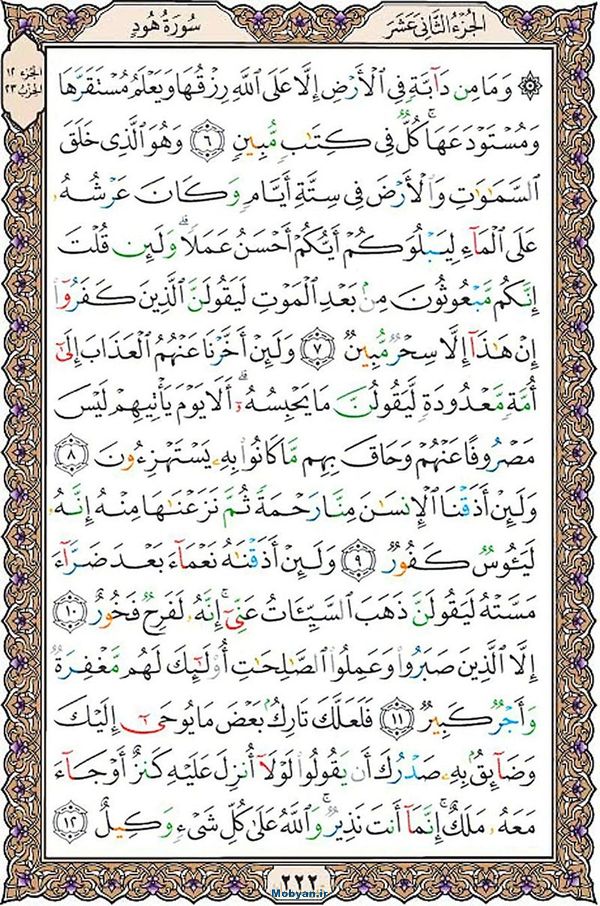 الجزء الثانی عشر
سورة هود
الجزء ١٢
الحزب ٢٣
۞ وَمَا مِن دَآبَّةٍ فِي ٱلْأَرْضِ إِلَّا عَلَى ٱللَّهِ رِزْقُهَا وَيَعْلَمُ مُسْتَقَرَّهَا
وَمُسْتَوْدَعَهَا ۚ كُلٌّ فِي كِتَٰبٍ مُّبِينٍ ٦ وَهُوَ ٱلَّذِي خَلَقَ
ٱلسَّمَٰوَٰتِ وَٱلْأَرْضَ فِي سِتَّةِ أَيَّامٍ وَكَانَ عَرْشُهُۥ
عَلَى ٱلْمَآءِ لِيَبْلُوَكُمْ أَيُّكُمْ أَحْسَنُ عَمَلًا ۗ وَلَئِن قُلْتَ
إِنَّكُم مَّبْعُوثُونَ مِنۢ بَعْدِ ٱلْمَوْتِ لَيَقُولَنَّ ٱلَّذِينَ كَفَرُوٓا۟
إِنْ هَٰذَآ إِلَّا سِحْرٌ مُّبِينٌ ٧ وَلَئِنْ أَخَّرْنَا عَنْهُمُ ٱلْعَذَابَ إِلَىٰٓ
أُمَّةٍ مَّعْدُودَةٍ لَّيَقُولُنَّ مَا يَحْبِسُهُۥٓ ۗ أَلَا يَوْمَ يَأْتِيهِمْ لَيْسَ
مَصْرُوفًا عَنْهُمْ وَحَاقَ بِهِم مَّا كَانُوا۟ بِهِۦ يَسْتَهْزِءُونَ ٨
وَلَئِنْ أَذَقْنَا ٱلْإِنسَٰنَ مِنَّا رَحْمَةً ثُمَّ نَزَعْنَٰهَا مِنْهُ إِنَّهُۥ
لَيَـُٔوسٌ كَفُورٌ ٩ وَلَئِنْ أَذَقْنَٰهُ نَعْمَآءَ بَعْدَ ضَرَّآءَ
مَسَّتْهُ لَيَقُولَنَّ ذَهَبَ ٱلسَّيِّـَٔاتُ عَنِّيٓ ۚ إِنَّهُۥ لَفَرِحٌ فَخُورٌ ١٠
إِلَّا ٱلَّذِينَ صَبَرُوا۟ وَعَمِلُوا۟ ٱلصَّٰلِحَٰتِ أُو۟لَٰٓئِكَ لَهُم مَّغْفِرَةٌ
وَأَجْرٌ كَبِيرٌ ١١ فَلَعَلَّكَ تَارِكٌۢ بَعْضَ مَا يُوحَىٰٓ إِلَيْكَ
وَضَآئِقٌۢ بِهِۦ صَدْرُكَ أَن يَقُولُوا۟ لَوْلَآ أُنزِلَ عَلَيْهِ كَنزٌ أَوْ جَآءَ
مَعَهُۥ مَلَكٌ ۚ إِنَّمَآ أَنتَ نَذِيرٌ ۚ وَٱللَّهُ عَلَىٰ كُلِّ شَيْءٍ وَكِيلٌ ١٢
٢٢٢
Mobyan.ir